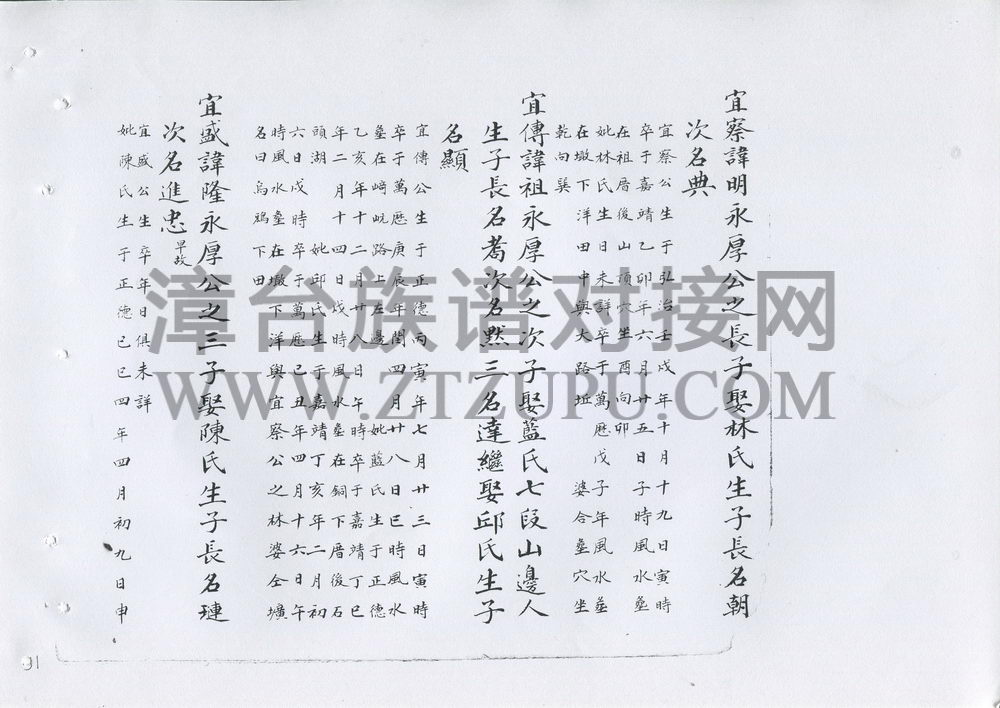 宜察諱明永厚公之長子娶林氏生子長名朝
次名典
宜察公生于弘治壬戌年十月十九日寅時
卒于嘉靖乙卯年六月廿五日子時風水塟
在祖厝後山頂穴坐酉向卯
妣林氏生日未詳卒于萬歷戊子年風水塟
在墩下洋田中與大路坵 婆合塟穴坐
乾向巽
宜傳諱祖永厚公之次子娶藍氏七段山邊人
生子長名蕎次名黙三名達繼娶邱氏生子
名顯
宜傳公生于正德丙寅年七月廿三日寅時
卒于萬歷庚辰年閏四月廿八日巳時風水
塟在崎 路上左邊 妣藍氏生于正德
乙亥年十二月廿八日午時卒于嘉靖丁巳
年二月十四日戌時風水塟在銅下厝後石
頭湖 妣邱氏生于嘉靖丁亥年二月初
六日戌時卒于萬歷己丑年四月十六日午
時風水塟在墩下洋與宜察公之林婆仝壙
名曰烏鴉下田
宜盛諱隆永厚公之三子娶陳氏生子長名璉
次名進忠 早故
宜盛公生卒年日俱未詳
妣陳氏生于正德己巳四年四月初九日申
漳台族谱对接网
WWW.ZTZUPU.COM
91